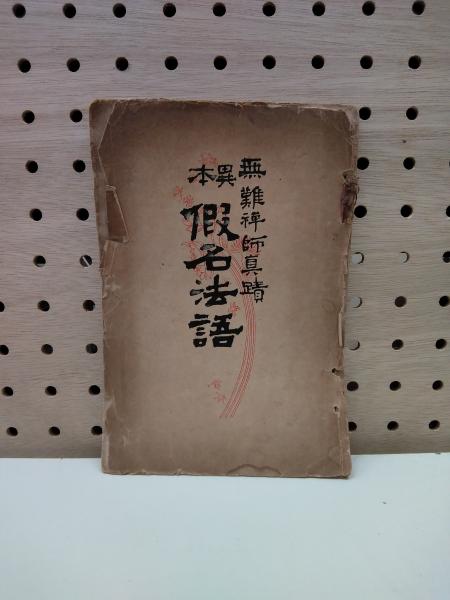 無難禪師真蹟
異本
假名法語